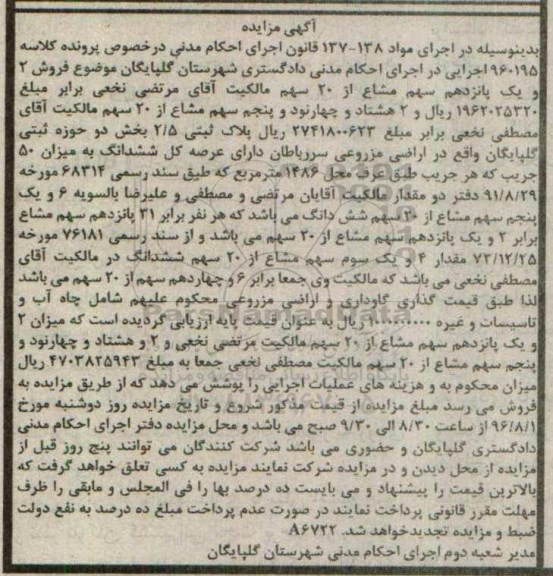 آگهی مزایده
بدینوسیله در اجرای مواد ۱۳۸-۱۳۷ قانون اجرای احکام مدنی درخصوص پرونده کلاسه
۹۶۰۱۹۵ اجرایی در اجرای احکام مدنی دادگستری شهرستان گلپایگان موضوع فروش ۲
و یک پانزدهم سهم مشاع از ۲۰ سهم مالکیت آقای مرتضی نخعی برابر مبلغ
۱۹۶۲۰۲۵۳۲۰ ریال و ۲ هشتاد و چهارنود و پنجم سهم مشاع از ۲۰ سهم مالکیت آقای
مصطفی نخعی برابر مبلغ ۲۷۴۱۸۰۰۶۲۳ ریال پلاک ثبتی ۲/۵ بخش دو حوزه ثبتی
گلپایگان واقع در اراضی مزروعی سررباطان دارای عرصه کل ششدانگ به میزان ۵۰
جریب که هر جریب طبق عرف محل ۱۴۸۶ مترمربع که طبق سند رسمی ۶۸۳۱۴ مورخه
۹۱/۸/۲۹ دفتر دو مقدار مالکیت آقایان مرتضی و مصطفی و علیرضا بالسویه ۶ و یک
پنجم سهم مشاع از ۲۰ سهم شش دانگ می باشد که هر نفر برابر ۳۱ پانزدهم سهم مشاع
برابر ۲ و یک پانزدهم سهم مشاع از ۲۰ سهم می باشد و از سند رسمی ۷۶۱۸۱ مورخه
۷۳/۱۲/۲۵ مقدار ۴ و یک سوم سهم مشاع از ۲۰ سهم ششدانگ در مالکیت آقای
مصطفی نخعی می باشد که مالکیت وی جمعا برابر ۶ و چهاردهم سهم از ۲۰ سهم می باشد
لذا طبق قیمت گذاری گاوداری و اراضی مزروعی محکوم علیهم شامل چاه آب و
تاسیسات و غیره ریال به عنوان قیمت پایه ارزیابی گردیده است که میزان ۲
و یک پانزدهم سهم مشاع از ۲۰ سهم مالکیت مرتضی نخعی و ۲ و هشتاد و چهارنود و
پنجم سهم مشاع از ۲۰ سهم مالکیت مصطفی نخعی جمعا به مبلغ ۴۷۰۳۸۲۵۹۴۳ ریال
میزان محکوم به و هزینه های عملیات اجرایی را پوشش می دهد که از طریق مزایده به
فروش می رسد مبلغ مزایده از قیمت مذکور شروع و تاریخ مزایده روز دوشنبه مورخ
۹۶/۸/۱ از ساعت ۸/۳۰ الی ۹/۳۰ صبح می باشد و محل مزایده دفتر اجرای احکام مدنی
دادگستری گلپایگان و حضوری می باشد شرکت کنندگان می توانند پنج روز قبل از
مزایده از محل دیدن و در مزایده شرکت نمایند مزایده به کسی تعلق خواهد گرفت که
بالاترین قیمت را پیشنهاد و می بایست ده درصد بها را فی المجلس و مابقی را ظرف
مهلت مقرر قانونی پرداخت نمایند در صورت عدم پرداخت مبلغ ده درصد به نفع دولت
ضبط و مزایده تجدیدخواهد شد. ۸۶۷۲۲
مدیر شعبه دوم اجرای احکام مدنی شهرستان گلپایگان
ParsNamadData